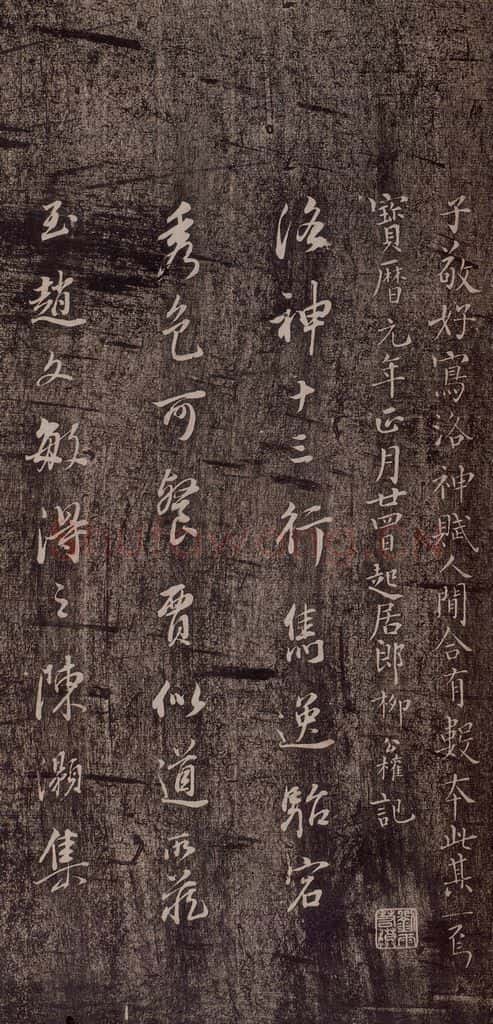 子敬好寫洛神賦人間合有數本此其一焉
寶曆元年正月廿四日起居郎柳公權記
洛神十三行雋逸駘宕
秀色可餐賈似道所藏
玉趙文敏得之陳灝集